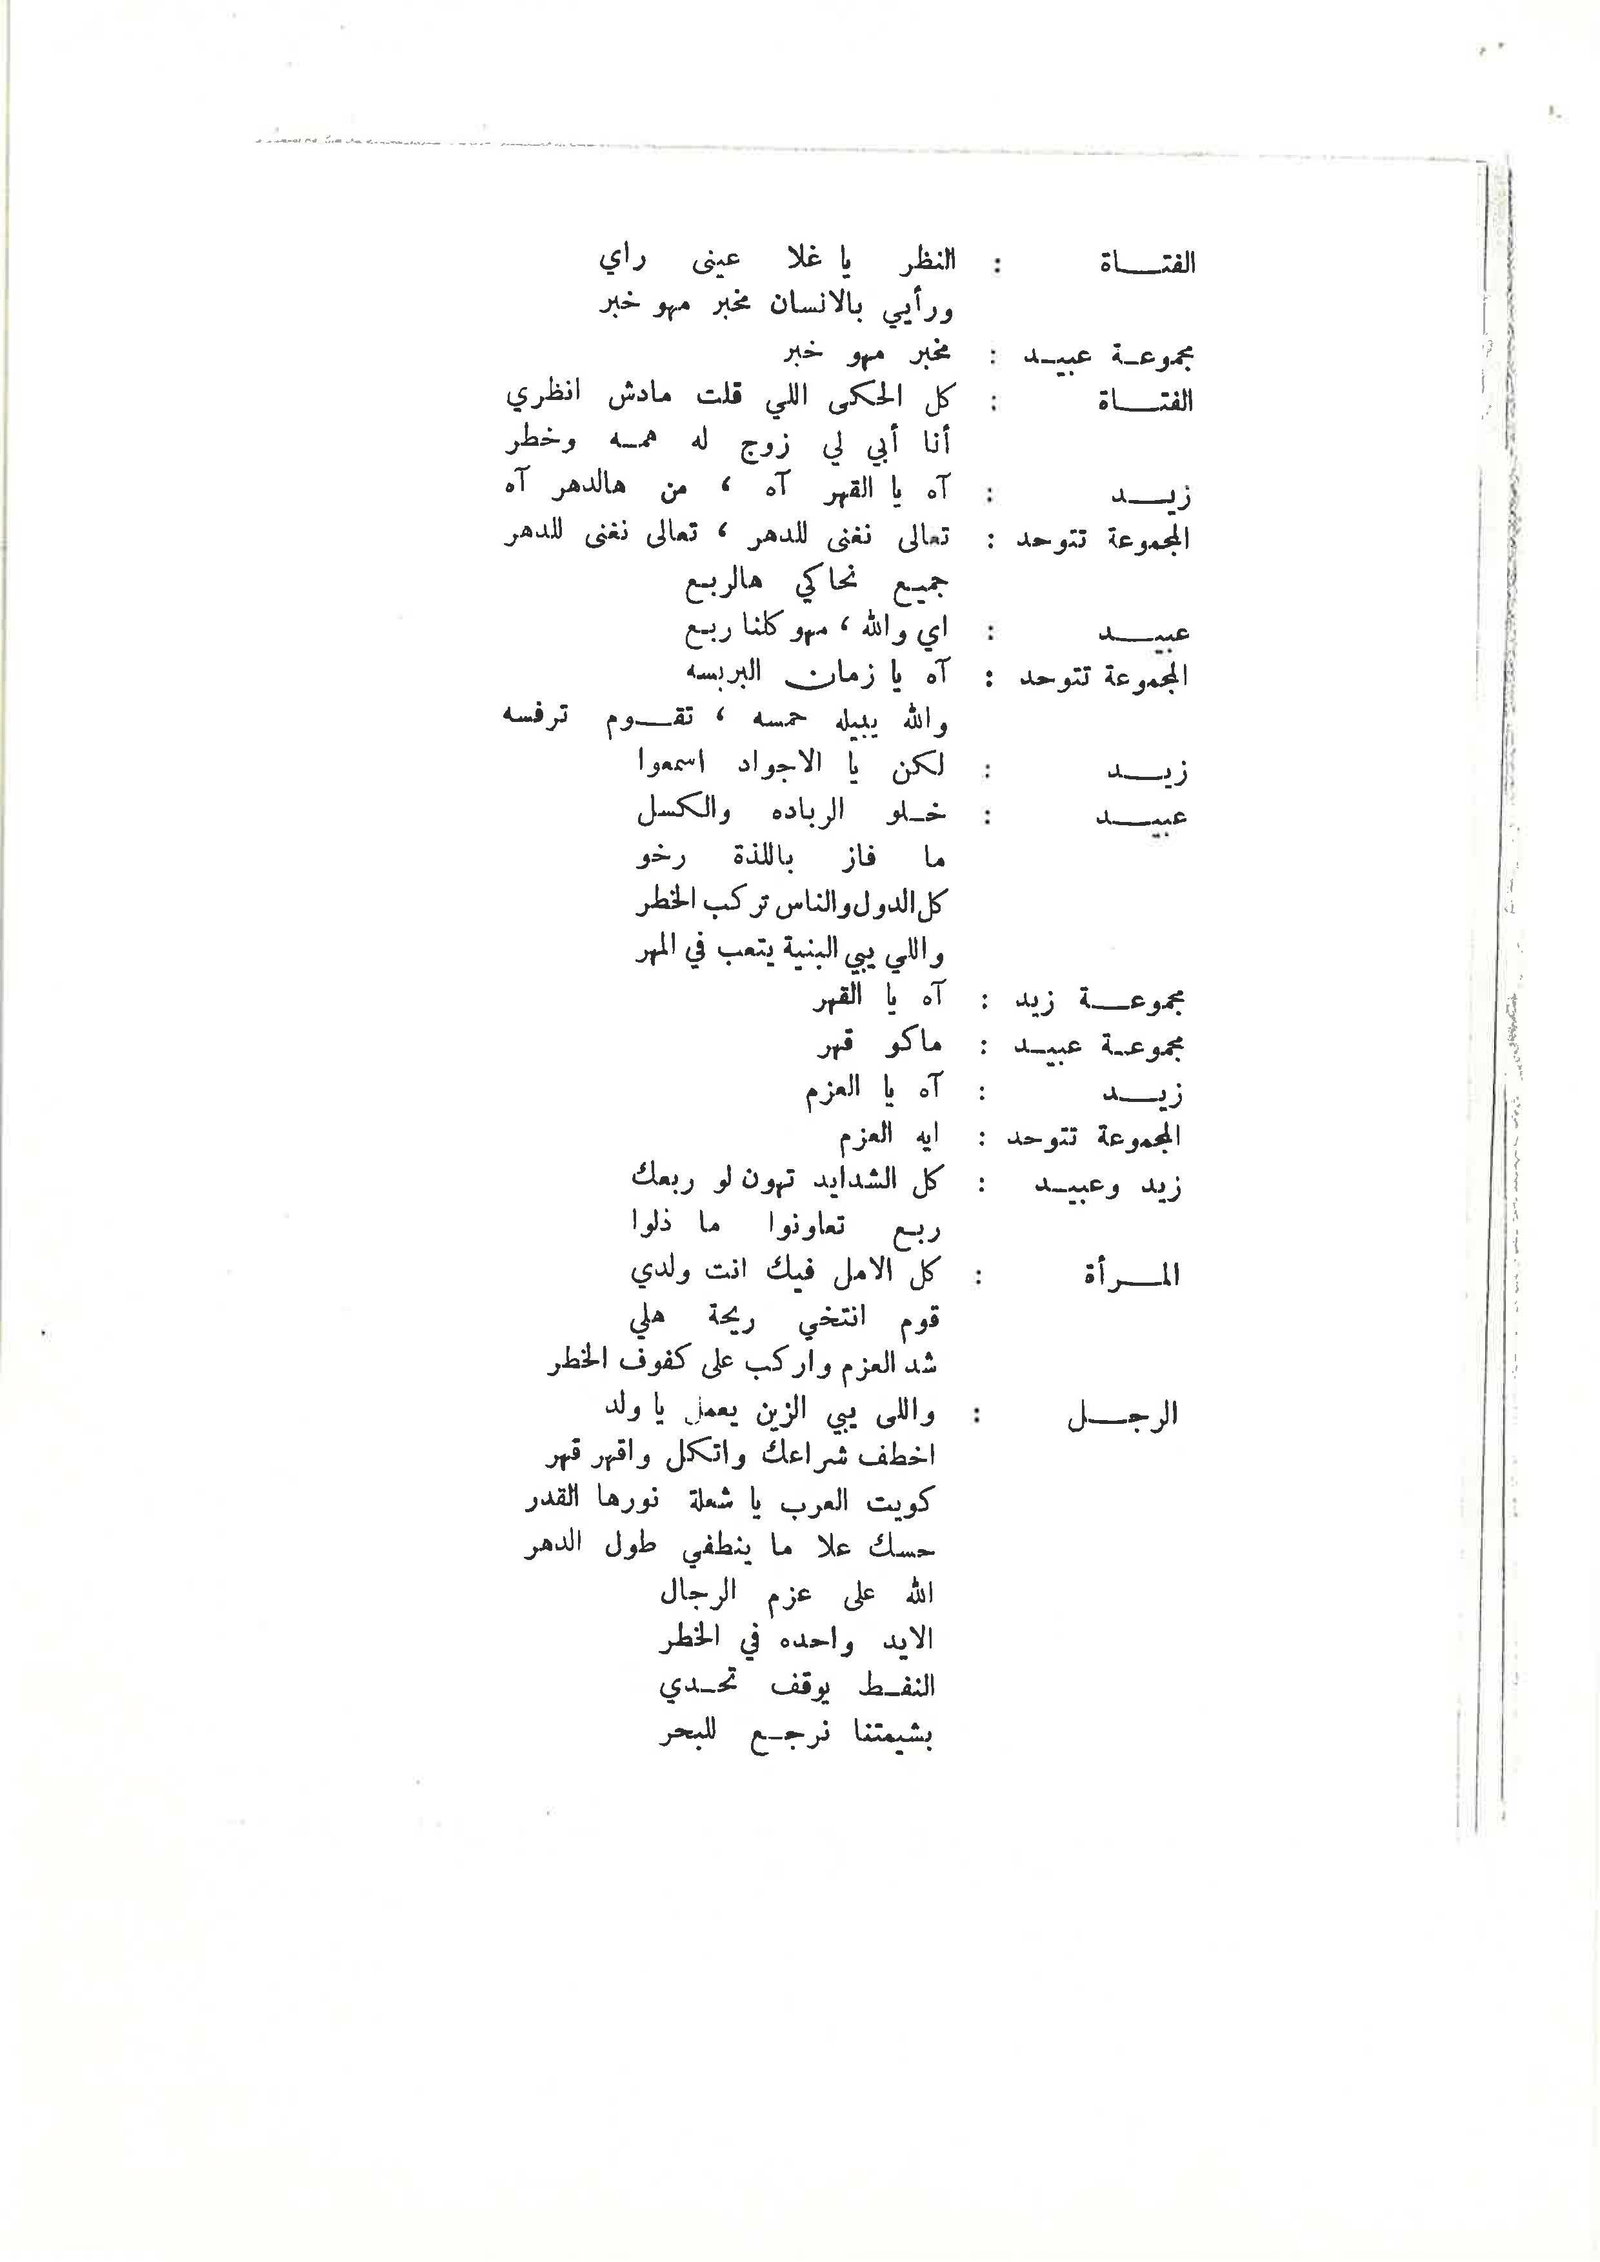 الفتاة : النظر يا غلا عينى راي
ورأيي بالانسان مخبر مهو خبر
مجموعة عبيد : مخبر مهو خبر
الفتاة : كل الحكى اللي قلت مادش انظري
أنا أبي لي زوج له همه وخطر
زيد : آه يا القهر آه ، من هالدهر آه
المجموعة تتوحد : تعالى نغنى للدهر ، تعالى نغنى للدهر
جميع نحاكي هالربع
عبيد : اي والله ، مهو كلنا ربع
المجموعة تتوحد : آه يا زمان البربسه
والله يبيله حمسه ، تقوم ترفسه
زيد : لكن يا الاجواد اسمعوا
عبيد : خلو الرباده والكسل
ما فاز باللذة رخو
كل الدول والناس تركب الخطر
واللي يبي البنية يتعب في المهر
مجموعة زيد : آه يا القهر
مجموعة عبيد : ماكو قهر
زيد : آه يا العزم
المجموعة تتوحد : ايه العزم
زيد وعبيد : كل الشدايد تهون لو ربعك
ربع تعاونوا ما ذلوا
المرأة : كل الامل فيك انت ولدي
قوم انتخي ريحة هلي
شد العزم واركب على كفوف الخطر
الرجل : واللى يبي الزين يعمل يا ولد
اخطف شراعك واتكل واقهر قهر
كويت العرب يا شعلة نورها القدر
حسك علا ما ينطفي طول الدهر
الله على عزم الرجال
الايد واحده في الخطر
النفط يوقف تحدي
بشيمتنا نرجع للبحر